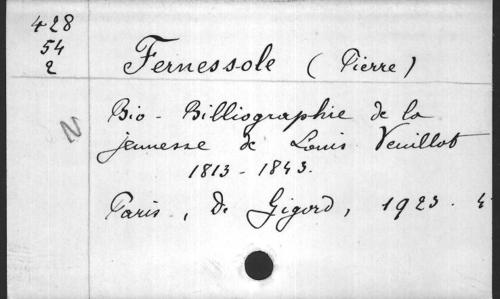 428
54
2
Fernessole (Pierre)
Bio-Billiographie de la
jeunesse de Louis Veuillot
1813-1843.
N
Paris, De Gigord, 1923. 4